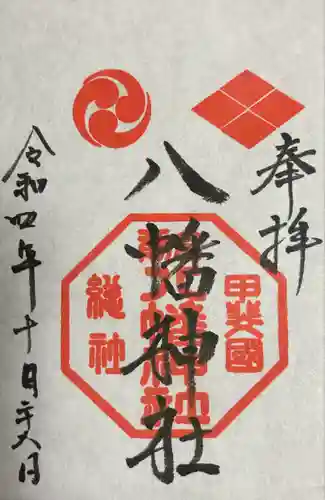 奉拝
八幡神社
甲斐國
総神
令和四年十月二十八日